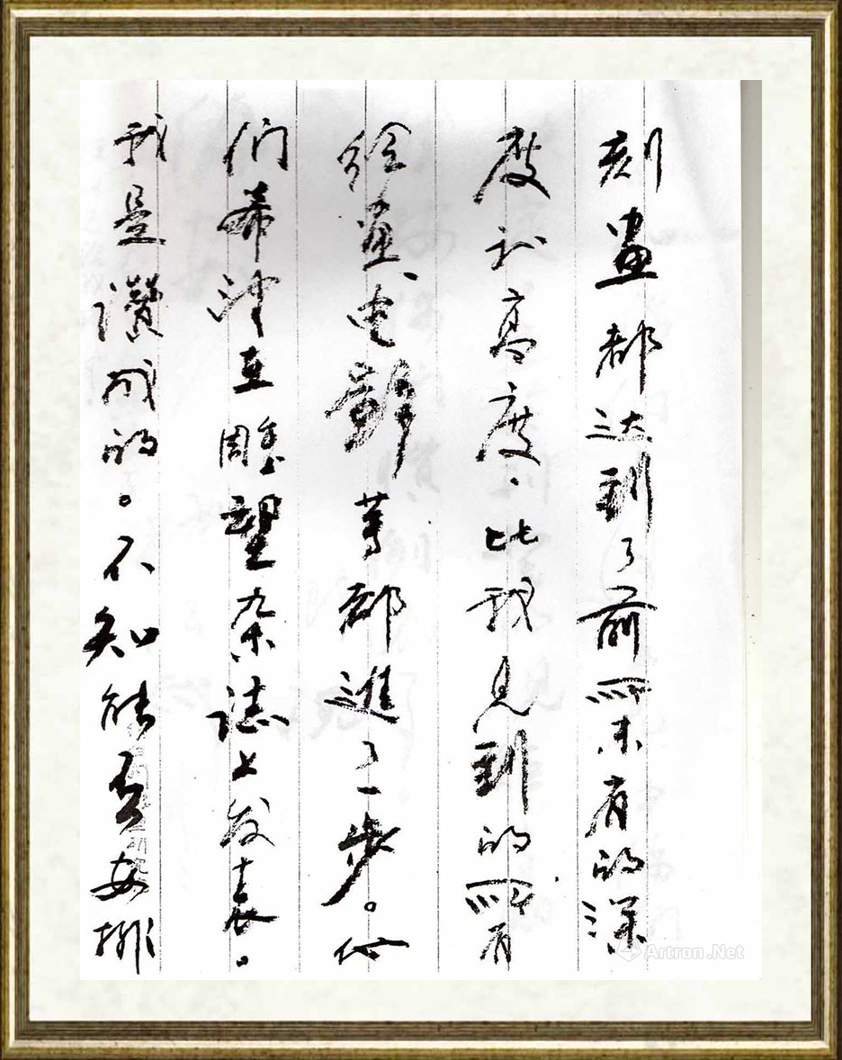 刻画都达到了前所未有的深
度和高度，比我见到的所有
绘画、电影等都進了一步。他
们希望在雕塑杂誌上发表。
我是讚成的。不知能否安排
Artron.Net